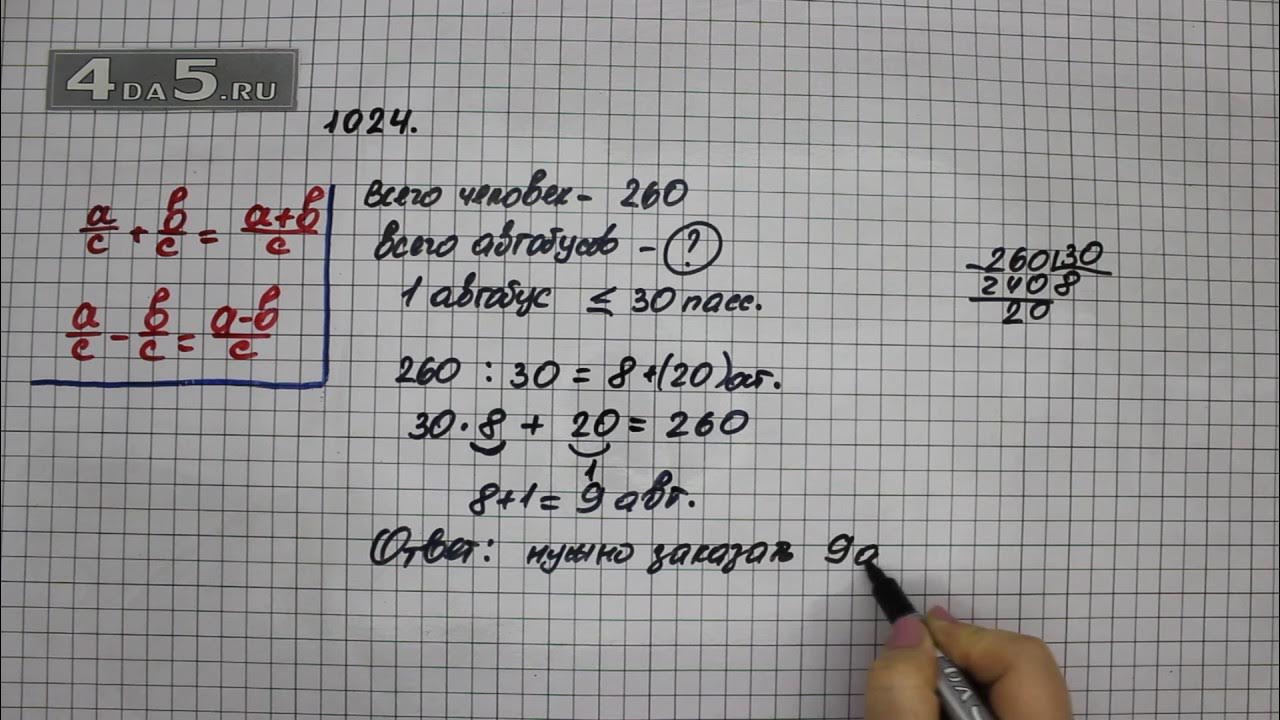 4DA5.RU
1024.
a/c + b/c = a+b/c
a/c - b/c = a-b/c
Всего человек - 260
всего автобусов - ?
1 автобус ≤ 30 пасс.
260 : 30 = 8 + (20) ост.
30 · 8 + 20 = 260
1
8+1 = 9 авт.
Ответ: нужно заказать 9а
- 260 30
240 8
20